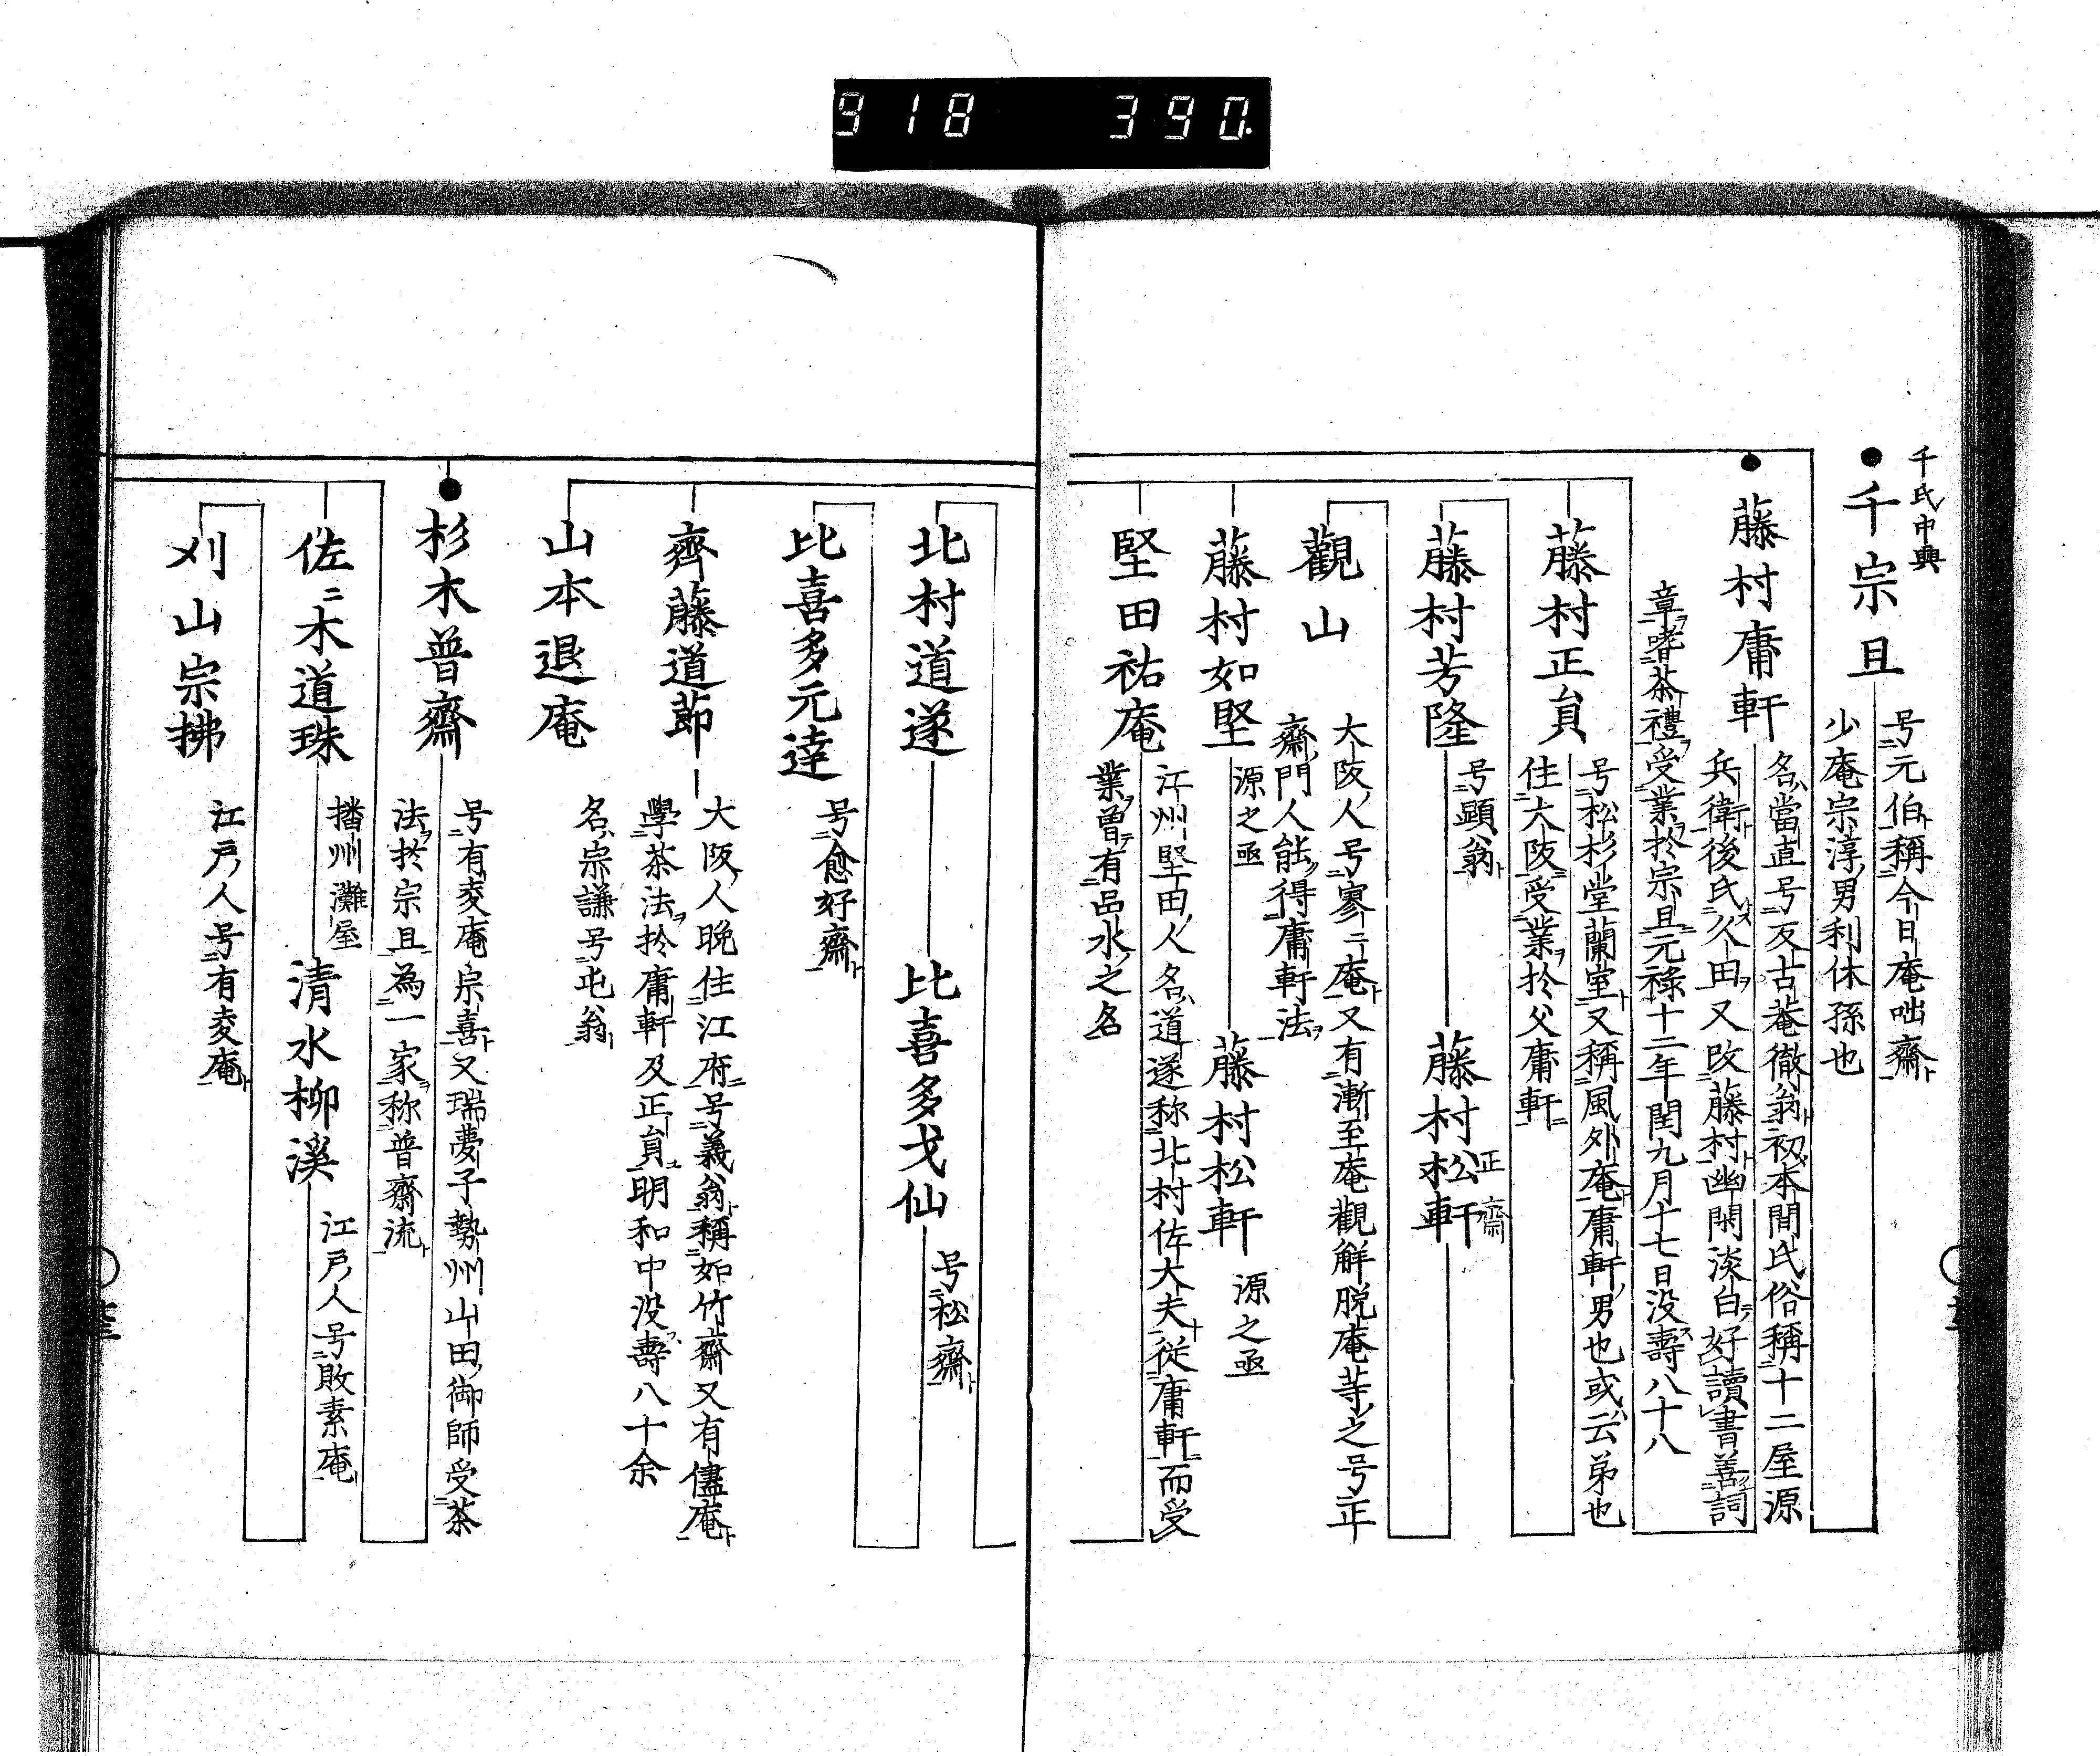 918 390.
千氏中興
千宗旦
号元伯稱今日庵咄齋
少庵宗淳男利休孫也
藤村庸軒
名當直号反古菴徹翁初本間氏俗稱十二屋源
兵衛後氏久田又改藤村幽閑淡白好讀書善詞
章嗜茶禮受業於宗旦元禄十二年閏九月十七日没壽八十八
藤村正員
号松杉堂蘭室又稱風外庵庸軒男也或云弟也
住大阪受業於父庸軒
藤村芳隆
号顕翁
藤村松軒
正齋
觀山
大阪人号寥々庵又有漸至庵觀解脱庵等之号正
齋門人能得庸軒法
藤村如堅
源之亟
藤村松軒
源之亟
堅田祐庵
江州堅田人名道遂称北村佐大夫從庸軒而受
業曽有品水之名
北村道遂
比喜多戈仙
号松齋
比喜多元達
号愈好齋
齊藤道節
大阪人晩住江府号義翁稱如竹齋又有儘庵
學茶法於庸軒及正員明和中没壽八十余
山本退庵
名宗謙号屯翁
杉木普齋
号有麦庵宗喜又瑞夢子勢州山田御師受茶
法於宗旦為一家称普齋流
佐々木道珠
播州灘屋
清水柳溪
江戸人号敗素庵
刈山宗拂
江戸人号有麦庵